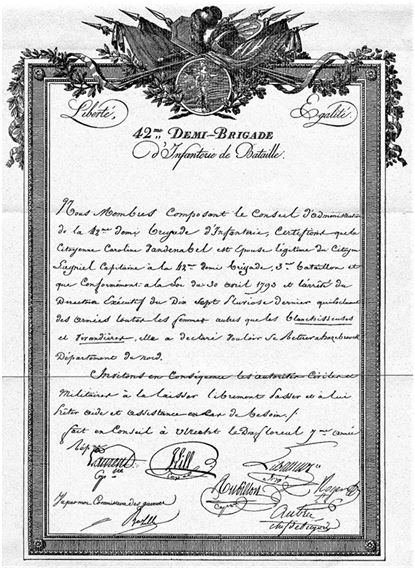 Liberté,
Egalité.
42me. DEMI-BRIGADE
d'Infanterie de Bataille.
Nous Membres Composant le Conseil d'administration
de la 42me demi Brigade d'Infanterie, Certifions que la
Citoyenne Caroline Vandenabel est Epouse légitime du Citoyen
Lagniel Capitaine à la 42me demi Brigade, 3me Bataillon et
que Conformément à la Loi du 30 avril 1793 et l'arrêté du
Directoire Exécutif du Dix Sept Niviose Dernier qui
des armées toutes les femmes autres que les Blanchisseuses
et Vivandières, elle a déclaré vouloir se Retirer à hazebrouck
Département du nord.
Invitons en Conséquence les autorités Civiles et
Militaires à la laisser librement Passer et à lui
Prêter aide et assistance en Cas de besoin /.
fait en Conseil à Utrecht le floreal 7me année
Rép
Laurent
Hill
Robillon
Autié